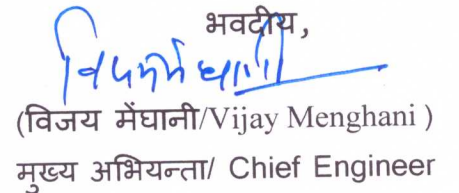 भवदीय,
विजय मेंघानी
(विजय मेंघानी/Vijay Menghani )
मुख्य अभियन्ता/ Chief Engineer